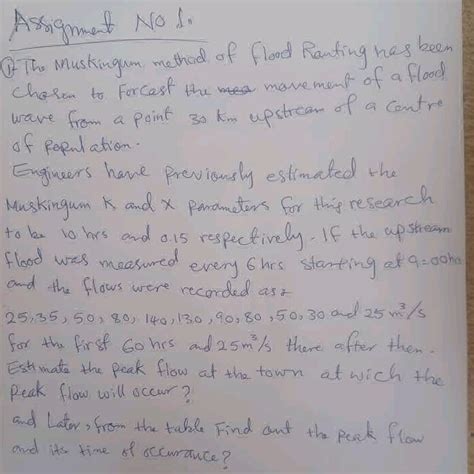 Assignment No 1.
1) The Muskingum method of flood Routing has been
chosen to Forcast the movement of a flood
wave from a point 30 km upstream of a centre
of population.
Engineers have previously estimated the
Muskingum K and X parameters for this research
to be 10 hrs and 0.15 respectively. If the upstream
flood was measured every 6 hrs starting at 9:00
and the flows were recorded as:
25, 35, 50, 80, 140, 130, 90, 80, 50, 30 and 25 m³/s
for the first 60 hrs and 25 m³/s there after then.
Estimate the peak flow at the town at wich the
peak flow will occur?
and Later, from the table Find out the peak flow
and its time of occurance?